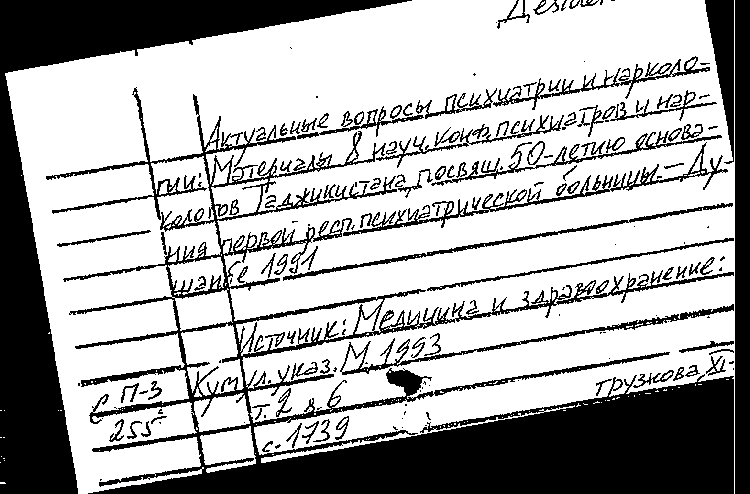 Desider
Актуальные вопросы психиатрии и нарколо-
гии: Материалы 8 науч. конф. психиатров и нар-
кологов Таджикистана, посвящ. 50-летию основа-
ния первой респ. психиатрической больницы. — Ду-
шанбе, 1991
Источник: Медицина и здравоохранение:
Кумул. указ. М, 1993
П-3
т. 2 в. 6
255²
с. 1739
грузкова XI-